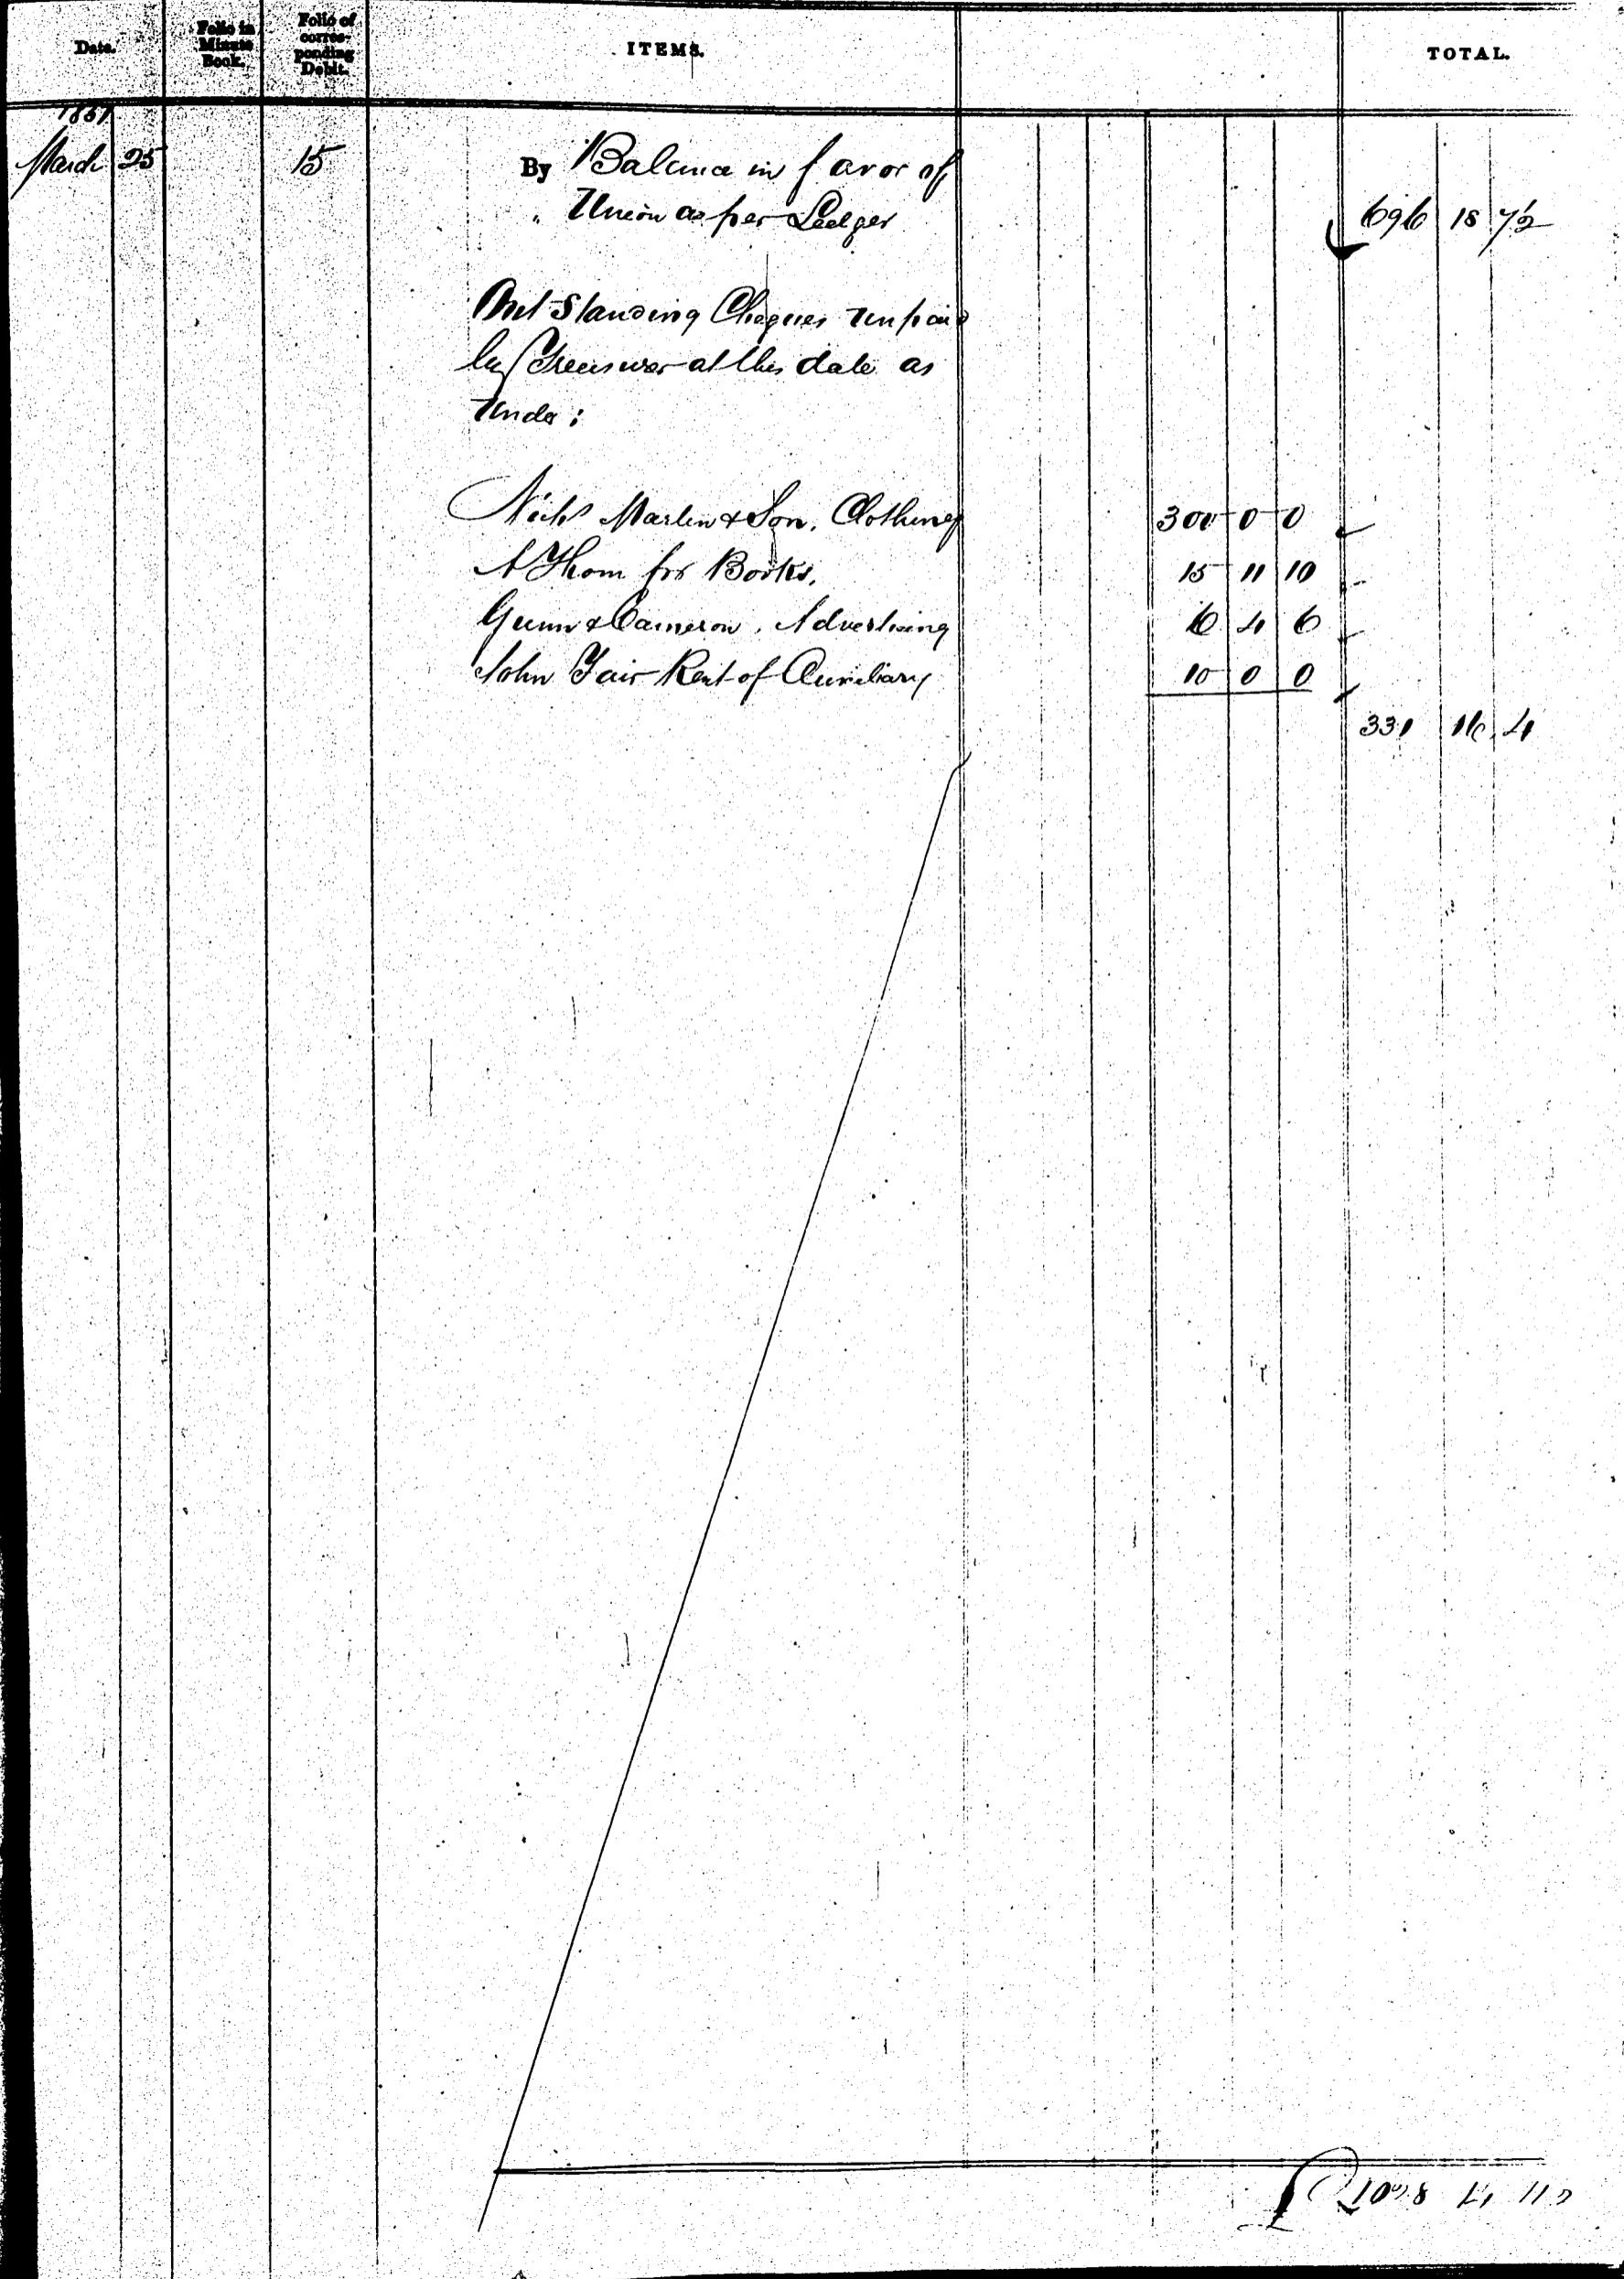 Date. Folio in Minute Book. Folio of corres-ponding Debit. ITEMS. TOTAL.
1851
March 25 15 By Balance in favor of
" Union as per Ledger 696 18 7½
Out Standing Cheques unpaid
by Treasurer at this date as
Under:
Nichs Martin & Son. Clothing 300 0 0
A Thom for Books. 15 11 10
Gunn & Cameron. Advertising 6 4 6
John Fair Rent of Auxiliary 10 0 0
331 16 4